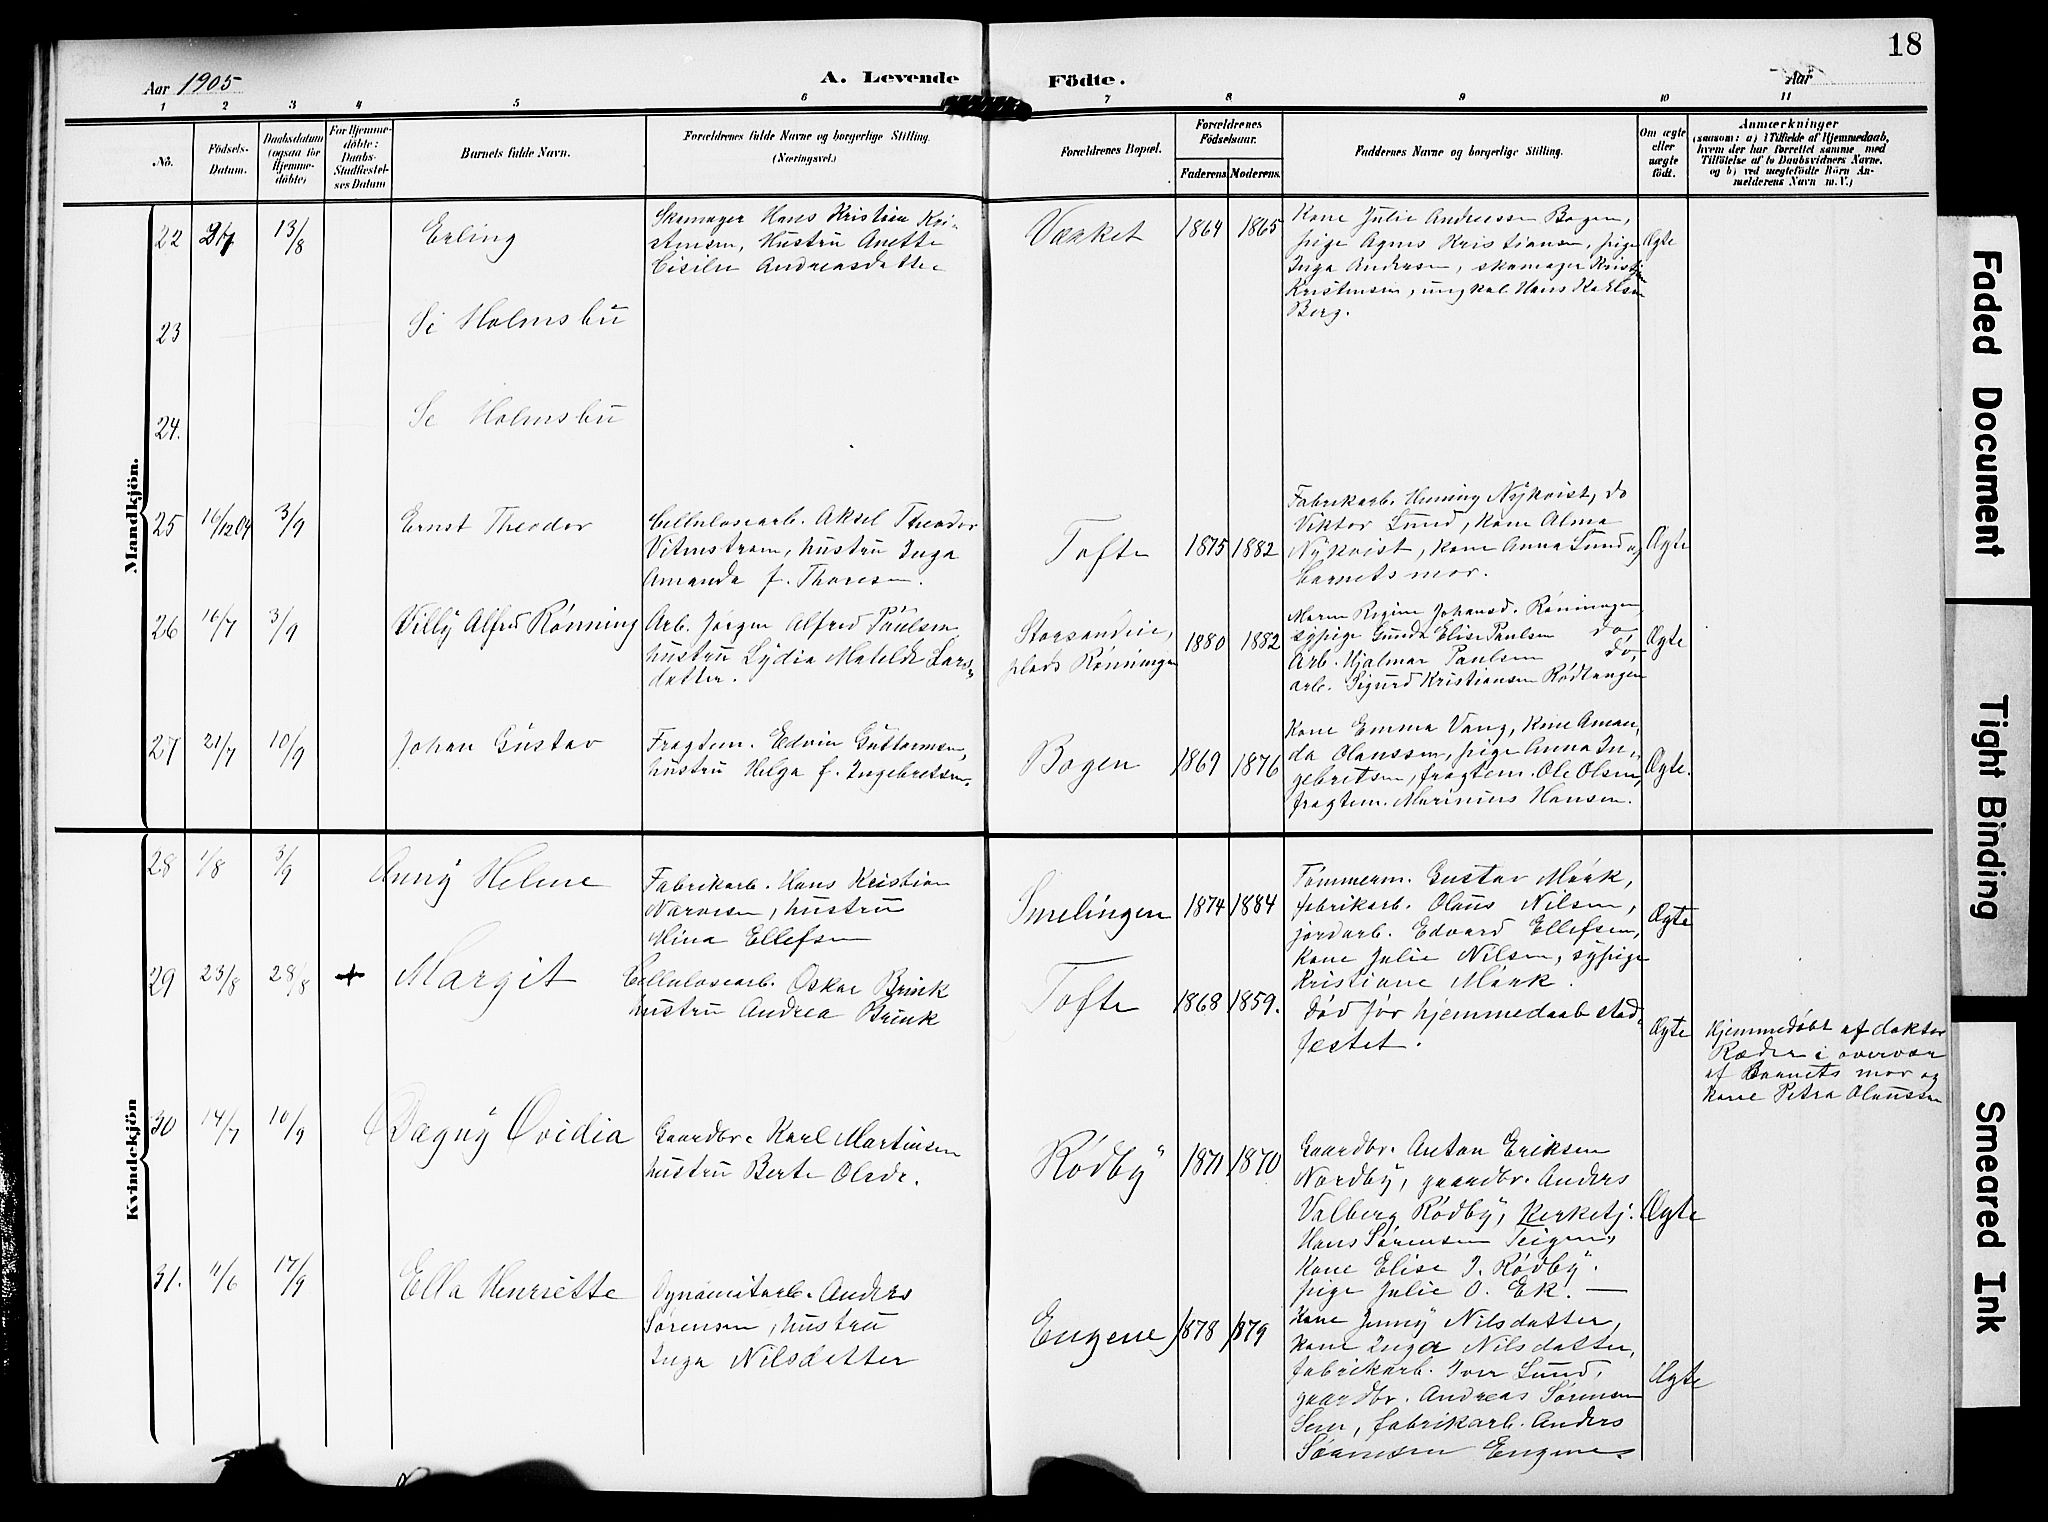 18
Aar 1905
A. Levende Födte.
Aar
1 2 3 4 5 6 7 8 9 10 11
Nö.
Födsels-
Datum.
Daabsdatum
(ogsaa for
Hjemme-
döbte)
For Hjemme-
döbte:
Daabs-
Stadfæstel-
ses Datum
Barnets fulde Navn.
Forældrenes fulde Navne og borgerlige Stilling.
(Næringsvei.)
Forældrenes Bopæl.
Forældrenes
Födselsaar.
Faderens
Moderens.
Faddernes Navne og borgerlige Stilling.
Om ægte
eller
uægte
födt.
Anmærkninger
(saasom: a) i Tilfælde af Hjemmedaab,
hvem der har forrettet samme med
Tilföielse af to Daabsvidners Navne,
og b) ved uægtefödte Börn An-
melderens Navn m. V.)
Mandkjön.
22
13/8
Erling
Skomager Hans Kristian Kri-
stensen, Hustru Anette
Cisilie Andreasdatter
Vaaket
1864
1865
Kone Julie Andreassen Bogen,
pige Agnes Kristiansen, pige
Inga Andersen, skomager Kristjan
Kristensen, ungkal Hans Karlsen
Berg.
Ægte
23
Se Holmsbu
24.
Se Holmsbu
25
16/12 04
3/9
Ernst Theodor
Cellulosearb. Aksel Theodor
Vitmstrøm, hustru Inga
Amanda f. Thoresen.
Tofte
1875
1882
Fabrikarb. Henning Nykvist, do
Viktor Lund, kone Alma
Nykvist, kone Anna Lund og
barnets mor.
Ægte
26
16/7
3/9
Villy Alfred Rønning
Arb. Jørgen Alfred Paulsen
hustru Lydia Matilde Lars-
datter.
Storsandeie,
plads Rønningen
1880
1882
Maren Regine Johansd. Rønningen,
sypige Gunda Elise Paulsen do
Arb. Hjalmar Paulsen do,
arb. Sigurd Kristiansen Rødtangen
Ægte
27
21/7
10/9
Johan Gustav
Fragtem. Edvin Guttormsen,
hustru Helga f. Ingebretsen.
Bogen
1869
1876
Kone Emma Vang, Kone Aman-
da Olaussen, pige Anna In-
gebretsen, fragtem. Ole Olsen,
fragtem. Marinius Hansen.
Ægte.
Kvindekjön
28
1/8
3/9
Anny Helene
Fabrikarb. Hans Kristian
Narvesen, hustru
Mina Ellefsen
Smelingen
1874
1884
Tømmerm. Gustav Mørk,
fabrikarb. Olaus Nilsen,
jordarb. Edvard Ellefsen,
Kone Julie Nilsen, sypige
Kristiane Mørk.
Ægte
29
23/8
28/8
+
Margit
Cellulosearb. Oskar Brink
hustru Andrea Brink
Tofte
1868
1859.
Død før hjemmedaab stad-
fæstet.
Ægte
Hjemmedøbt af doktor
Ræder i overvær
af Barnets mor og
Kone Petra Olaussen
30
14/7
10/9
Dagny Ovidia
Gaardbr. Karl Martinsen
hustru Berte Olsdr.
Rødby
1871
1870
Gaardbr. Anton Eriksen
Nordby, gaardbr. Anders
Valberg Rødby, kirketj.
Hans Sørensen Teigen,
Kone Elise J. Rødby.
pige Julie O. Ek. —
Ægte
31.
11/6
17/9
Ella Henriette
Dynamitarb. Anders
Sørensen, hustru
Inga Nilsdatter
Engene
1878
1879
Kone Jenny Nilsdatter,
Kone Inga Nilsdatter,
fabrikarb. Iver Lund,
gaardbr. Andreas Sørensen
Sem, fabrikarb. Anders
Sørensen Engene.
Ægte
Faded Document
Tight Binding
Smeared Ink